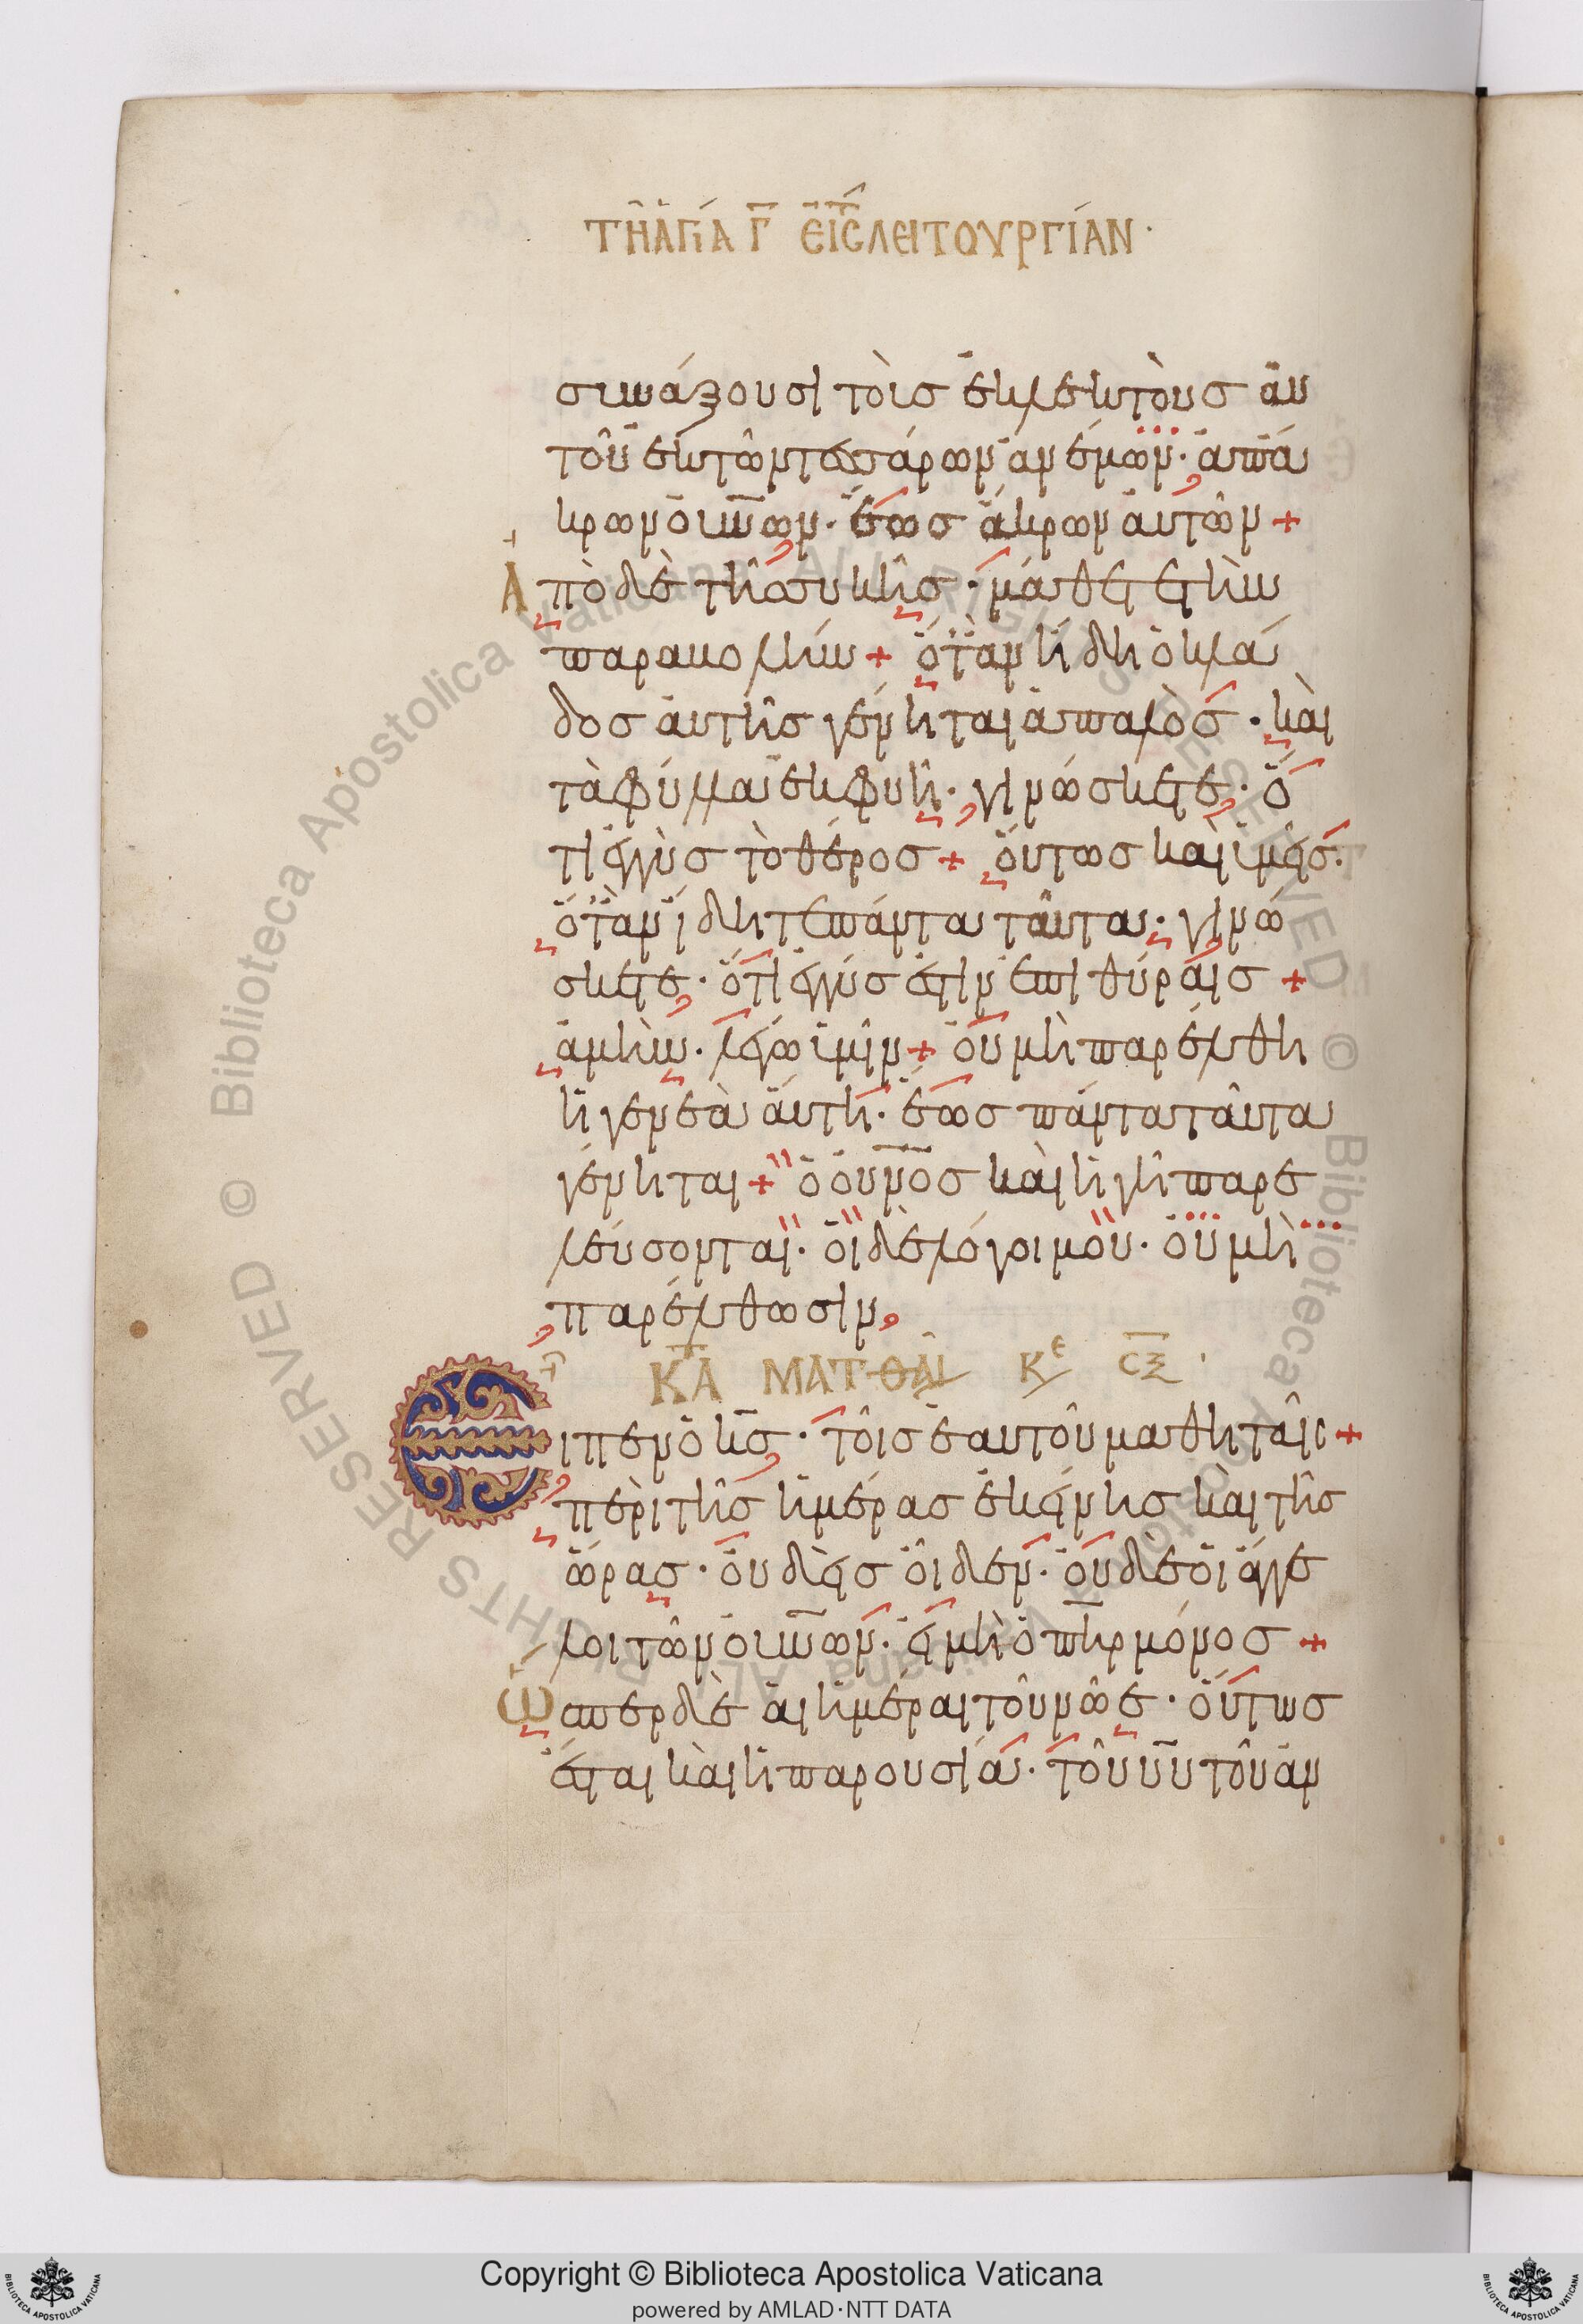 ΤΗ ΑΓΙΑ Γ ΕΙΣ Τ ΛΕΙΤΟΥΡΓΙΑΝ·
συνάξουσι τοὺς ἐκλεκτοὺς αὐ
τοῦ ἐκ τῶν τεσσάρων ἀνέμων· ἀπ' ἄ
κρων οὐν̅ων· ἕως ἄκρων αὐτῶν +
Ἀπὸ δὲ τῆς συκῆς· μάθετε τὴν
παραβολήν + ὅταν ἤδη ὁ κλά
δος αὐτῆς γένηται ἁπαλὸς· καὶ
τὰ φύλλα ἐκφυῆ· γινώσκετε· ὅ
τι ἐγγὺς τὸ θέρος + οὕτως καὶ ὑμεῖς·
ὅταν ἴδητε πάντα ταῦτα· γινώ
σκετε· ὅτι ἐγγύς ἐστιν ἐπὶ θύραις +
ἀμὴν· λέγω ὑμῖν + οὐ μὴ παρέλθη
ἡ γενεὰ αὕτη· ἕως πάντα ταῦτα
γένηται + ὁ οὐν̅ο̅ς καὶ ἡ γῆ παρε
λεύσονται· οἱ δὲ λόγοι μου· οὐ μὴ
παρέλθωσιν,
ΚΑΤ ΜΑΤΘΑΙ ΚΕ CΞ ·
Εἶπεν ὁ κ̅ς· τοῖς ἑαυτοῦ μαθηταῖς +
περὶ τῆς ἡμέρας ἐκείνης καὶ τῆς
ὥρας· οὐδεὶς οἶδεν· οὐδὲ οἱ ἄγγε
λοι τῶν οὐν̅ων· εἰ μὴ ὁ π̅ηρ μόνος +
Ὥσπερ δὲ αἱ ἡμέραι τοῦ νῶε· οὕτως
ἔσται καὶ ἡ παρουσία· τοῦ υ̅υ τοῦ ἀν
Copyright © Biblioteca Apostolica Vaticana
powered by AMLAD·NTT DATA